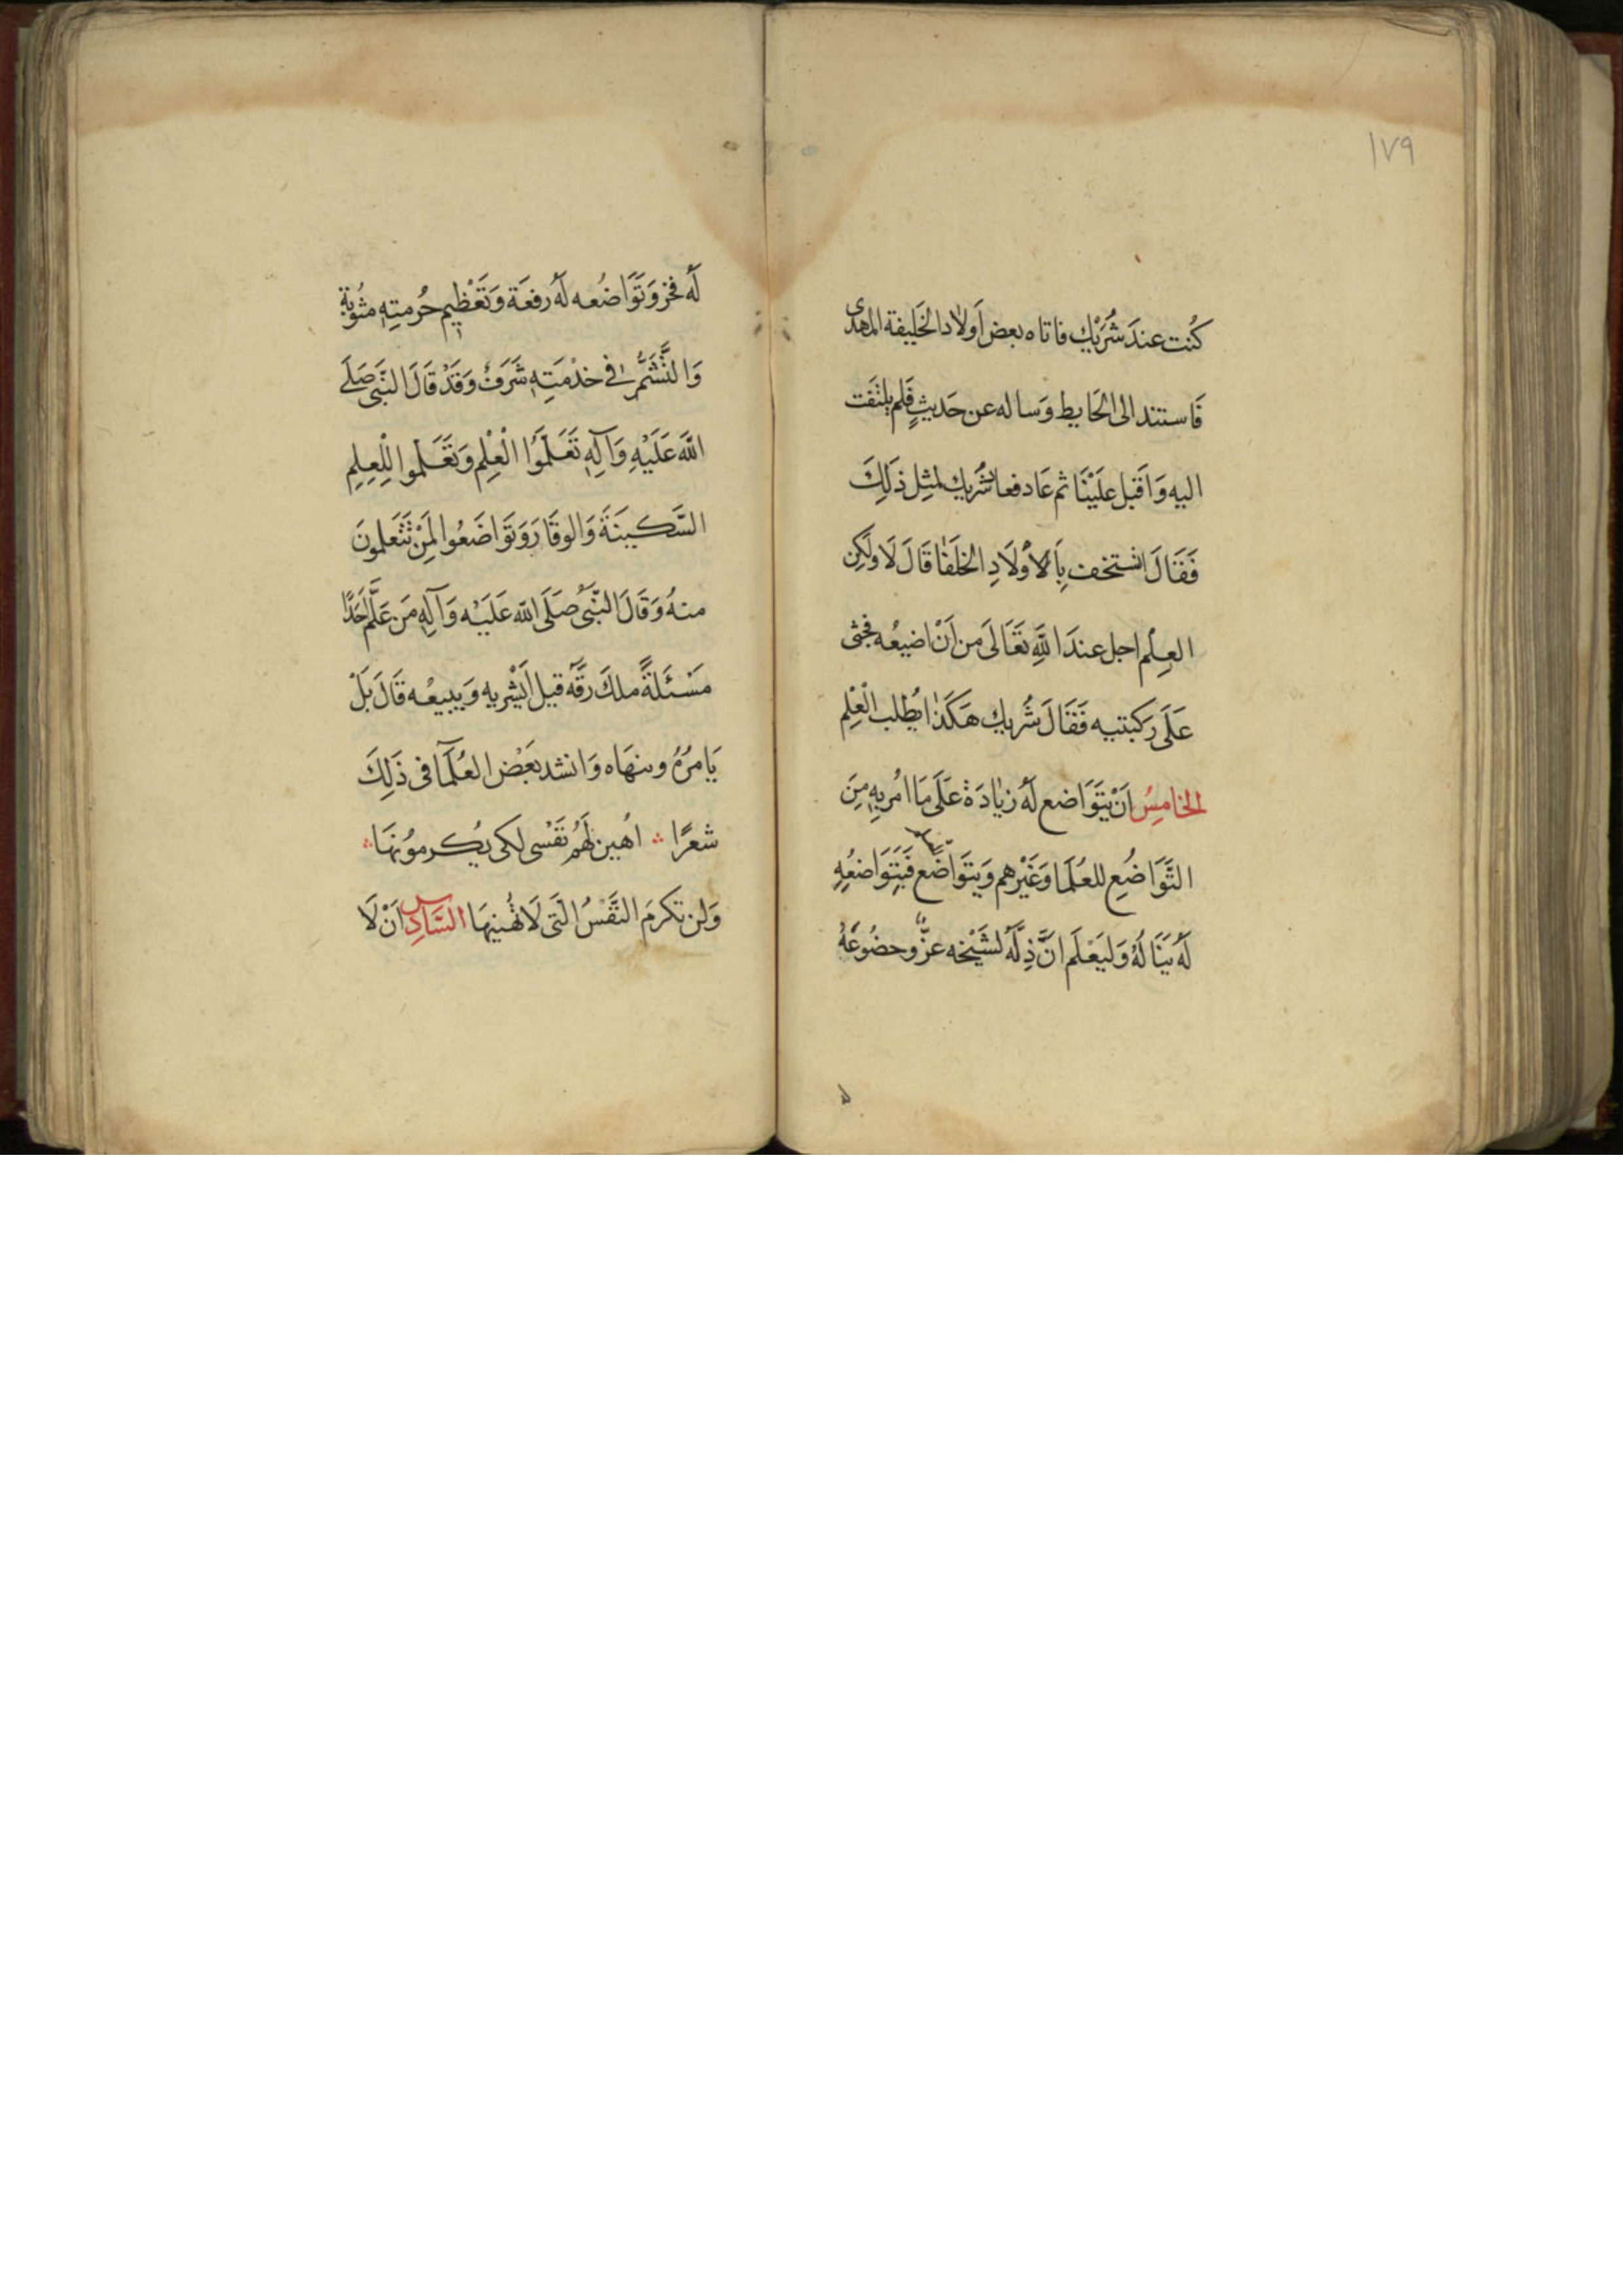 ١٧٩
كُنت عندَ شُرَيْك فاتاه بعض اَولاد الخَليفة المهدى
فَاستند الى الحَايط وَساله عن حَديثٍ فَلم يلتفَت
اليه وَاقبَل علَيْنَا ثم عَاد فعاد شُريك لمثِل ذَلِكَ
فَقَالَ اتستخف بِاَلاَوْلَادِ الخلَفَا قَالَ لَا ولَكِن
العِلْم اجل عندَ اللهِ تَعَالَى من اَنْ اضيعُه فجثى
عَلَى رَكبتيه فَقَالَ شُريك هَكَذا يُطْلب الْعِلْم
الخامِسُ اَنْ يتَوَاضع لَهُ زيادَة عَلَى مَا امُر بِهِ مِنَ
التَّوَاضُعِ للعُلَمَا وَغَيْرهم وَيتَوَاضَع فَبِتَوَاضعُهِ
لَهُ يَنَالُهُ وَليَعْلَم انَّ ذِلَّهُ لشَيْخه عزٌّ وحضُوعَهُ
لَهُ فخر وَتَوَاضُعه لَهُ رفعَة وَتَعْظِيم حُرمتِهِ مثُوبة
وَالتَّشَمُّر فى خدْمَتِهِ شَرَفٌ وَقَدْ قَالَ النبَّى صَلَى
اللهَ عَلَيْهِ وَآلِهِ تَعَلَمَوُا الْعِلْم وَتَعَلَموا لِلْعِلمِ
السَّكينَةَ وَالوقَارَ وَتَوَاضَعُوا لِمَنْ تَتَعَلمونَ
منهُ وَقَالَ النبَّى صَلَى الله عَلَيْه وَآلِهِ مَن عَلَّم اَحَدًا
مَسْئَلَةً ملكَ رِقَّه قيل اَيَشْريه وَيبيعُه قَالَ بَلْ
يَامرُهُ وينهَاه وَانشد بَعَضْ العُلَمَآ فى ذَلِكَ
شعرًا ؞ اُهين لَهَمُ نَفْسى لكى يُكرموُنَهَا ؞
وَلن تكرمَ النَّفْسُ الَّتى لَا تُهْينهَا السَّادِس اَنْ لَا